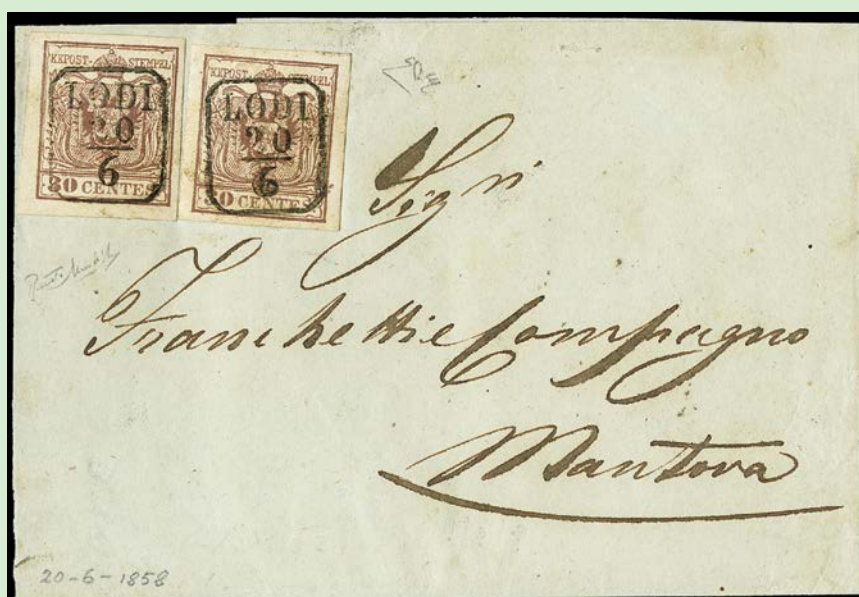 KKPOST-STEMPEL
LODI
20
6
30 CENTES
KKPOST-STEMPEL
LODI
20
6
30 CENTES
Sigri
Franchetti e Compagno
Mantova
20-6-1858